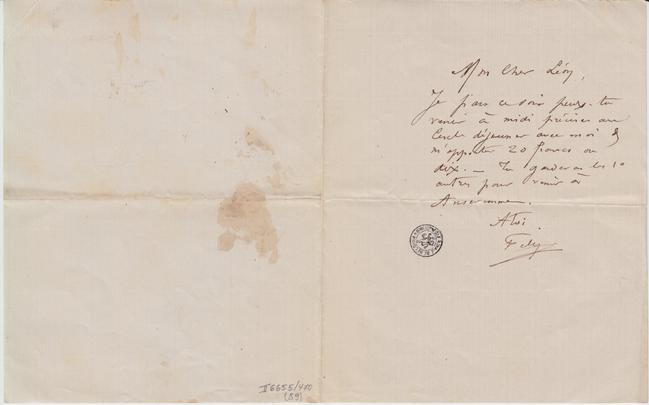 Mon cher Léon,
Je pars ce soir peux-tu
venir à midi précises au
Cercle déjeuner avec moi &
m'apporter 20 francs ou
dix. — Tu garderas les 10
autres pour venir à
Anseremme.
A toi.
Fely
II 6655/410
(59)